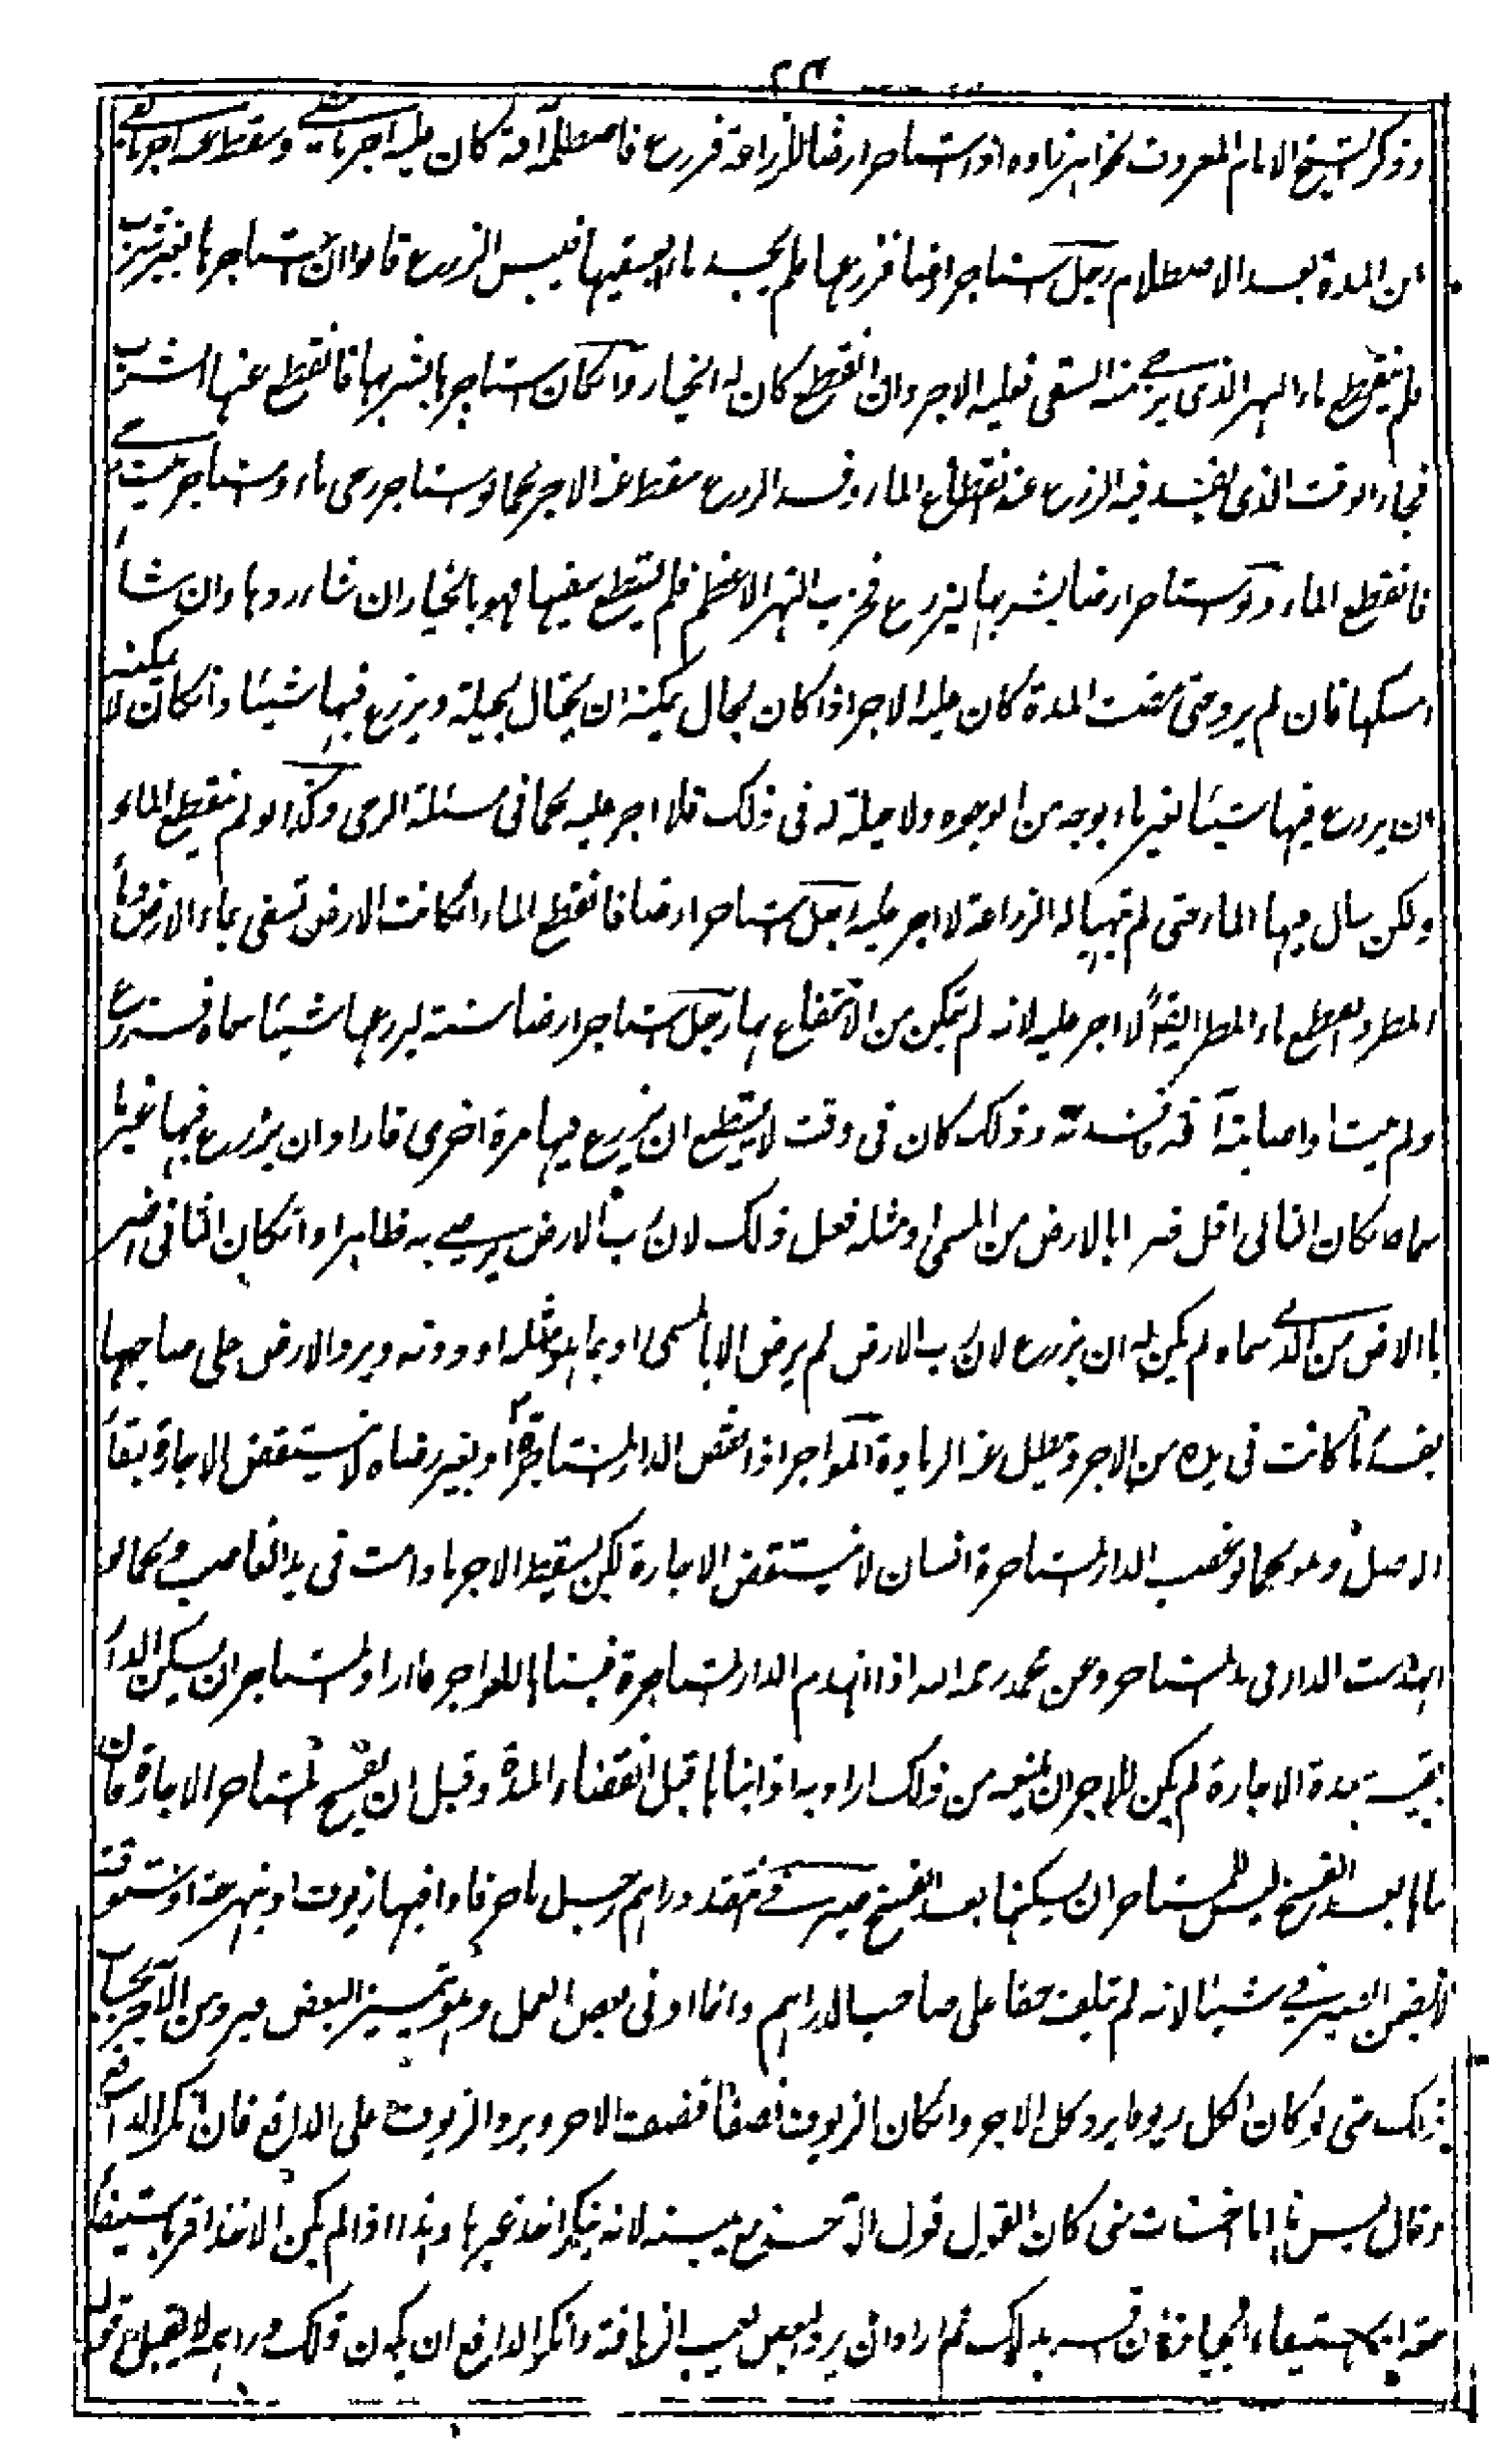 ٢٣
وذكر الشيخ الامام المعروف بخواهر زاده اذا استاجر ارضا للزراعة فزرع فاصطلمه آفة كان عليه اجر ما مضى وسقط عنه اجر ما بقى
من المدة بعد الاصطلام رجل استاجر ارضا فزرعها فلم يجد ماء ليسقيها فيبس الزرع قالوا ان استاجرها بغير شرب
فلم ينقطع ماء النهر الذى يرجى منه السقى فعليه الاجر وان انقطع كان له الخيار وان كان استاجرها بشربها فانقطع عنها الشرب
فجاء الوقت الذى يفسد فيه الزرع عند انقطاع الماء وفسد الزرع سقط عنه الاجر كما لو استاجر رحى ماء واستاجر بيت
فانقطع الماء ولو استاجر ارضا بشربها ليزرع فخرب النهر الاعظم فلم يستطع سقيها فهو بالخيار ان شاء ردها وان شاء
امسكها فان لم يرد حتى مضت المدة كان عليه الاجر اذا كان بحال يمكنه ان يحتال بحيلة ويزرع فيها شيئا وان كان لا يمكنه
ان يزرع فيها شيئا بغير ماء بوجه من الوجوه ولا حيلة له فى ذلك فلا اجر عليه كما فى مسئلة الرحى وكذا لو لم ينقطع الماء
ولكن سال فيها الماء حتى لم تتهيا له الزراعة لا اجر عليه رجل استاجر ارضا فانقطع الماء ان كانت الارض تسقى بماء الارض او بماء
المطر وانقطع ماء المطر ايضا لا اجر عليه لانه لم يتمكن من الانتفاع بها رجل استاجر ارضا سنة ليزرعها شيئا سماه فزرع
ولم ينبت او اصابته آفة فافسدته وذلك كان فى وقت لا يستطيع ان يزرع فيها مرة اخرى فاراد ان يزرع فيها غير ما
سماه ان كان الثانى اقل ضررا بالارض من المسمى او مثله فعل ذلك لان رب الارض يرضى به ظاهرا وان كان الثانى اضر
بالارض من الذى سماه لم يكن له ان يزرع لان رب الارض لم يرض الا بالمسمى او بما هو مثله او دونه ويرد الارض على صاحبها
بقسط ما كانت فى يده من الاجر وتبطل عنه الزيادة المواجر اذا نقض الدار المستاجرة برضا المستاجر او بغير رضاه لا ينتقض الاجارة لبقاء
الاصل وهو كما لو غصب الدار المستاجرة انسان لا ينتقض الاجارة لكن يسقط الاجر ما دامت فى يد الغاصب وكما لو
انهدمت الدار فى يد المستاجر وعن محمد رحمه الله اذا انهدم الدار المستاجرة فبناها المواجر فاراد المستاجر ان يسكن الدار
بقية مدة الاجارة لم يكن للاجر ان يمنعه من ذلك اراد به اذا بناها قبل انقضاء المدة وقبل ان يفسخ المستاجر الاجارة فان
بناها بعد الفسخ ليس للمستاجر ان يسكنها بعد الفسخ صيرفى انتقد دراهم رجل باجر فاذا فيها زيوف او نبهرجة او ستوقة
لا يضمن الصيرفى شيئا لانه لم يتلف حقا على صاحب الدراهم وانما اوفى بعض العمل وهو تمييز البعض فيرد من الاجر بحساب
ذلك حتى لو كان الكل زيوفا يرد كل الاجر وان كان الزيوف نصفا فنصف الاجر ويرد الزيوف على الدافع فان انكر الدافع
وقال ليس هذا ما اخذت منى كان القول قول الاخذ مع يمينه لانه ينكر اخذ غيرها وهذا اذا لم يكن الاخذ اقر باستيفاء
حقه او باستيفاء الجياد فان اقر بذلك ثم اراد ان يرد البعض بعيب الزيافة وانكر الدافع ان يكون ذلك دراهمه لا يقبل قوله